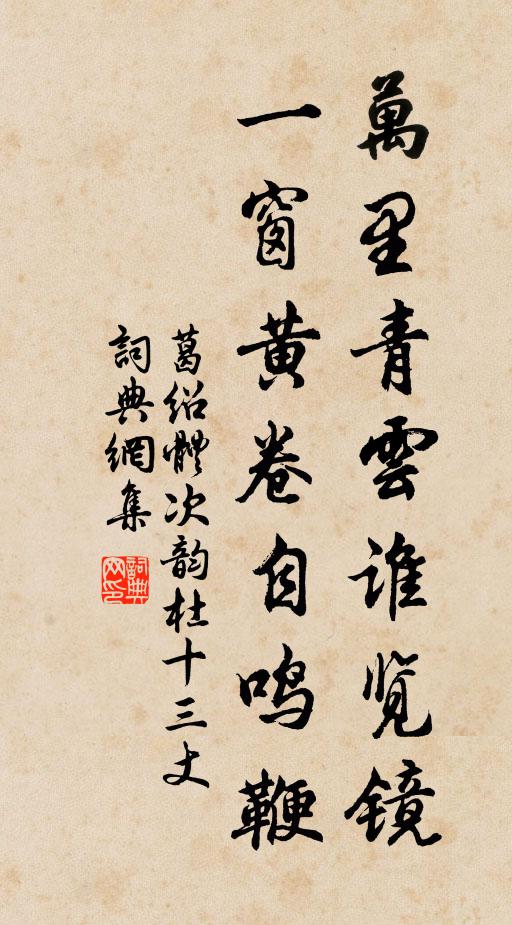 萬里青雲谁览镜
一窗黄卷自鸣鞭
葛绍體次韵杜十三丈
詞典網集
詞典网印